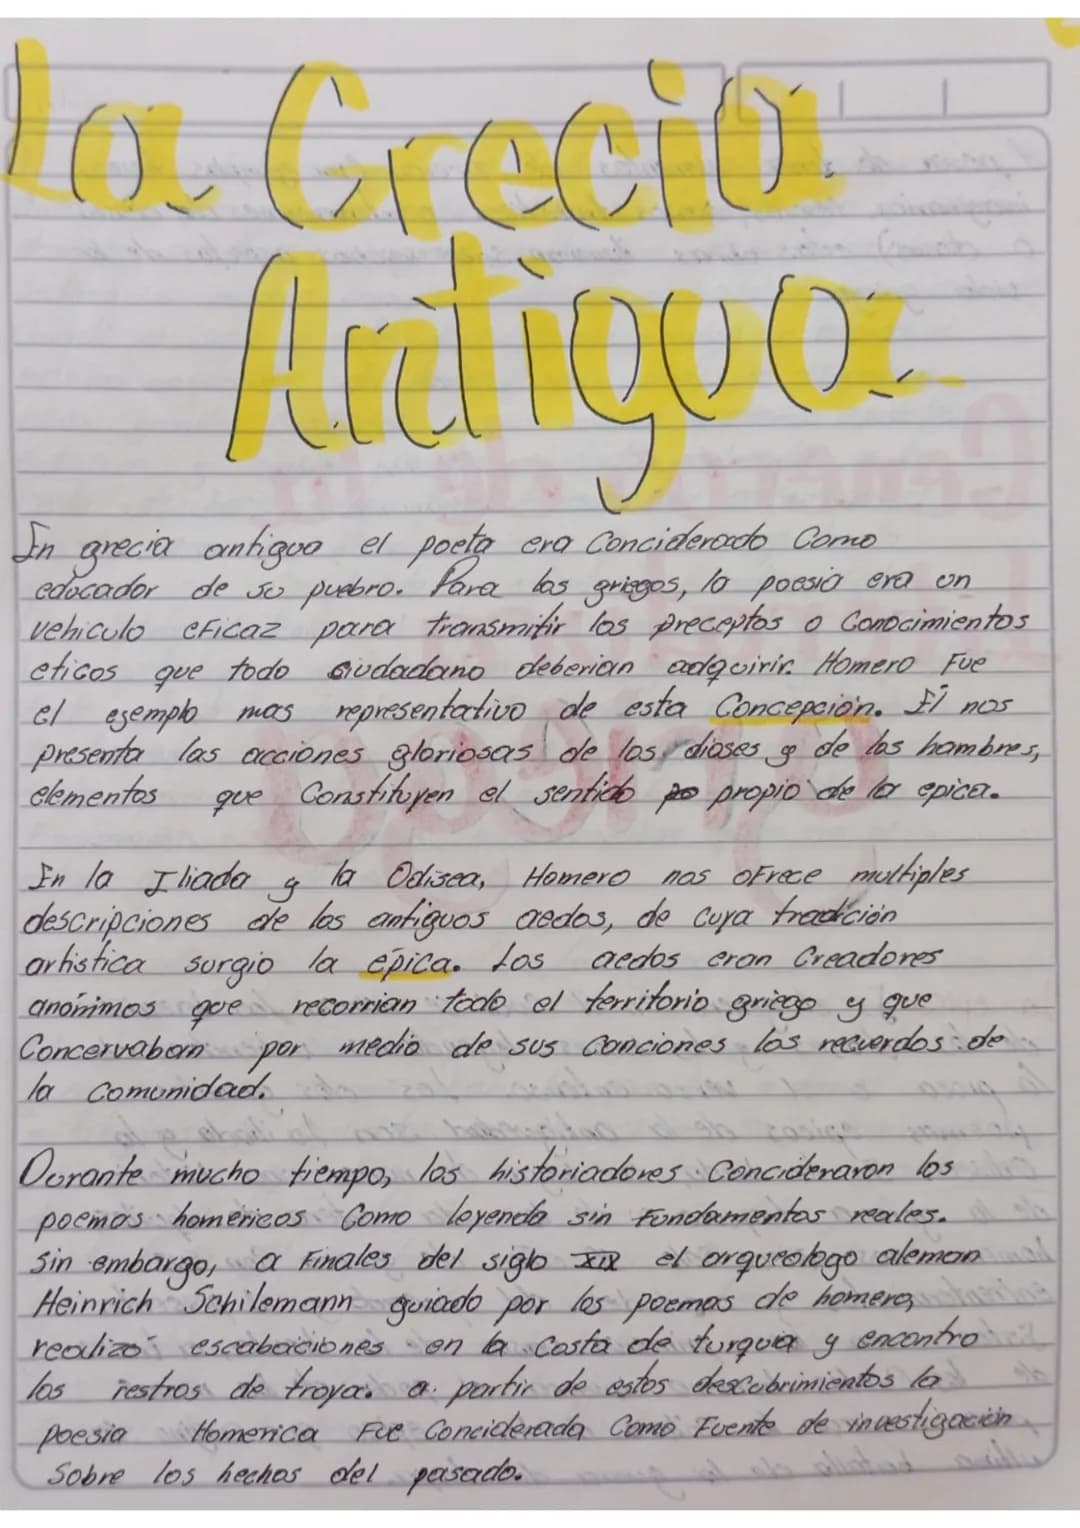 La Grecia
Antigua
En grecia antigua el poeta era Conciderado Como
educador de su puebro. Para los griegos, la poesia era un
vehiculo eficaz para transmitir los preceptos o Conocimientos
eticos que todo ciudadano deberian adquirir. Homero Fue
el egemplo mas representativo de esta Concepción. Él nos
presenta las acciones gloriosas de los dioses y de los hombres,
elementos que Constituyen el sentido po propio de la epica.
En la Iliada y la Odisea, Homero nos ofrece multiples
descripciones de los antiguos aedos, de cuya tradición
artistica surgio la épica. Los aedos eran Creadores
anónimos que recorrian todo el territorio griego y que
Concervaban por medio de sus Canciones los recuerdos de
la Comunidad.
Durante mucho tiempo, los historiadores Concideraron los
poemas homéricos Como leyenda sin Fundamentos reales.
sin embargo, a Finales del siglo XIX el arqueologo aleman
Heinrich Schilemann guiado por los poemas de homero,
realizo escabaciones en la Costa de turquia y encontro
los restros de troya. a partir de estos descubrimientos la
poesia Homerica Fue Conciderada Como Fuente de investigación
Sobre los hechos del pasado.